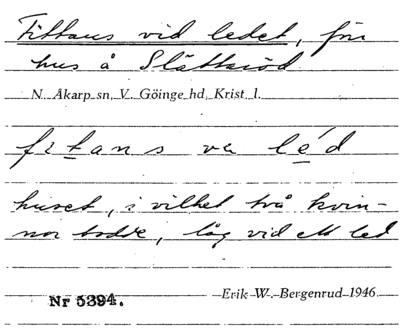 Fittans vid ledet, för
hus å Slättaröd
N. Åkarp sn, V. Göinge hd, Krist. l.
fitans ve léd
huset, i vilket två kvin-
nor bodde, låg vid ett led
Nr 5394.
Erik W. Bergenrud 1946